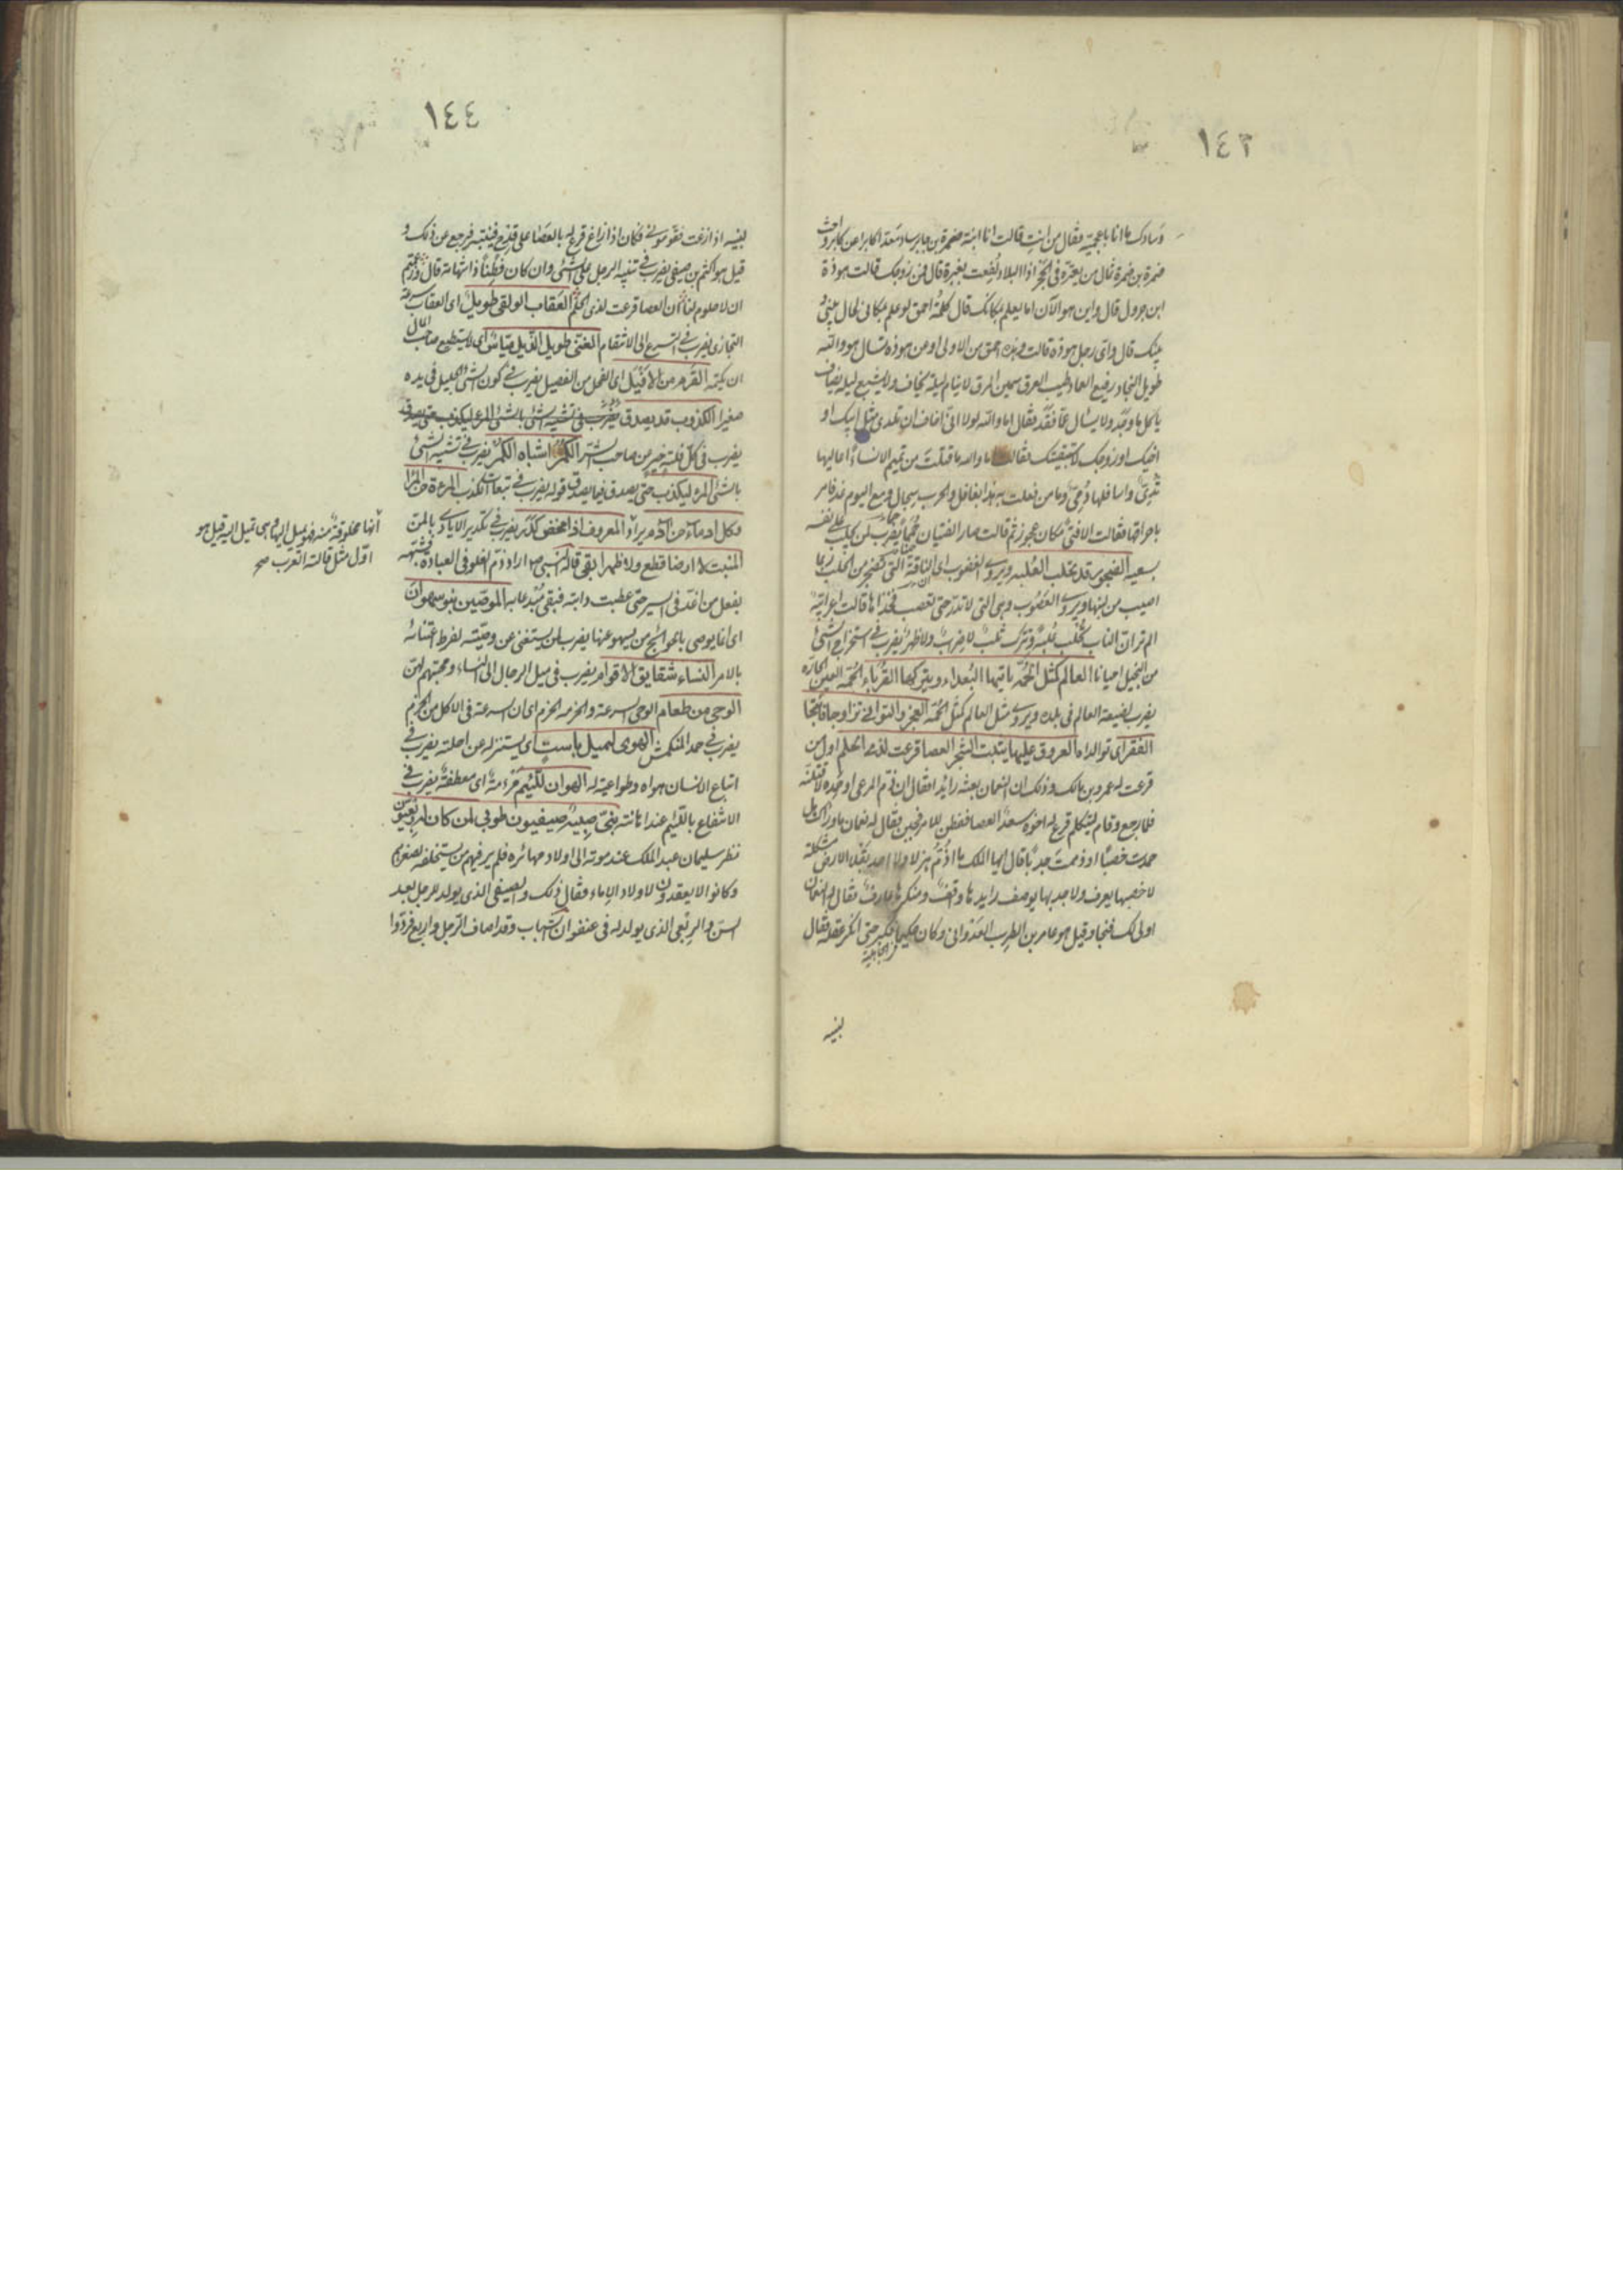 ١٤٣
وسادك ما انا باعجمية فقال من انت قالت انا ابنة ضمرة بن جابر ساد معدا كابرا عن كابر واخت
ضمرة بن ضمرة قال من زوجك قالت هوذة
ابن جرول قال واين هو الآن اما يعلم مكانك قال كلمة احمق لو علم مكاني لحال بيني و
بينك قال واي رجل هوذة قالت وهذه احمق من الاولى او عن هوذة تسال هو والله
طويل النجاد رفيع العماد طيب العرق سمين المرق لا ينام ليلة يخاف ولا يشبع ليلة يضاف
ياكل ما وجد ولا يسال عما فقد فقال اما والله لولا اني اخاف ان تلدي مثل ابيك او
اخيك او زوجك لاستبقيتك فقالت اما والله ما قتلت من تميم الا نساء اعاليها
ثدي واسافلها دمي وما من فعلت به هذا بغافل والحرب سجال ومع اليوم غد فامر
باحراقها فقالت الا فتى مكان عجوز ثم قالت صار الفتيان حمما يضرب لمن يجلب على نفسه
بسعيه الضجور قد تحلب العلبة ويروى الغضوب اى الناقة التي تضجر من الحلب ربما
اصيب من لبنها ويروى العصوب وهى التي لا تدر حتى تعصب فخذاها قالت اعرابية
الم تر ان الناب تحلب علبة ويترك ثلب لا ضراب ولا ظهر يضرب في استخراج الشئ
من البخيل احيانا العالم كمثل الحمة ياتيها البعداء ويتركها القرباء الحمة العين الحارة
يضرب لضيعة العالم في بلده ويروى مثل العالم كمثل الحمة العجز والتواني تزاوجا فانتجا
الفقر اى توالداه العروق عليها ينبت الشجر العصا قرعت لذى الحلم اول من
قرعت له عمرو بن مالك وذلك ان النعمان بعثه رائدا فقال ان ذم المرعى او حمده لاقتلنه
فلما رجع وقام ليتكلم قرع له اخوه سعد العصا ففطن للامر فقال له نعمان ما وراءك هل
حمدت خصبا او ذممت جدبا قال ايها الملك ما اذم هزلا ولا احمد بقلا الارض مشكلة
لا خصبها يعرف ولا جدبها يوصف رايدها واقف ومنكرها عارف فقال له النعمان
اولى لك فنجا وقيل هو عامر بن الظرب العدواني وكان حكيما فكبر حتى انكر عقله فقال
في الجاهلية
لبنيه
١٤٤
لبنيه اذا زغت فقوموني فكان اذا زاغ قرع له بالعصا على قدح فينتبه فرجع عن ذلك و
قيل هو اكثم بن صيفي يضرب في تنبيه الرجل على الشئ وان كان فطنا ذا شهامة قال وزعمتم
ان لا حلوم لنا ان العصا قرعت لذى الحلم العقاب الولقى طويل اى العقاب سرعة
التجازى يضرب في التسرع الى الانتقام الغنى طويل الذيل مياس اى لا يستطيع صاحب المال
ان يكتمه القرم من الافيل اى الفحل من الفصيل يضرب في كون الشئ الجليل في بدءه
صغيرا الكذوب قد يصدق
يضرب في كل فلتة خير من صاحب الشر الكمر اشباه الكمر يضرب في تشبيه الشئ
بالشئ المرء ليكذب حتى يصدق فما يصدق قوله يضرب في تبعات الكذب المرء من المرء
وكل ادماء من آدم يراد المعروف اذا محض كدر يضرب في تكدير الايادي بالمن
المنبت لا ارضا قطع ولا ظهرا ابقى قاله النبي ص اراد ذم الغلو في العبادة وشبهه
بفعل من اغذ في السير حتى عطبت دابته فبقى منبتا به الموصين بنو سهوان
اى انما يوصى بالحوائج من يسهو عنها يضرب لمن يستغنى عن وصيته لفرط اعتنائه
بالامر النساء شقايق الاقوام يضرب في ميل الرجال الى النساء ومحبتهم لهن
يضرب في حمد المنكمش الهوى لميل باست اى يستنزله عن اصلته يضرب في
اتباع الانسان هواه وطواعيته له الهوان للئيم مرءمة اى معطفة يضرب في
الانتفاع باللئيم عند اهانته بني صبية صيفيون طوبى لمن كان له ربعيون
نظر سليمان عبد الملك عند موته الى اولاد مهائره فلم ير فيهم من يستخلفه لصغرهم
وكانوا لا يعقدون لاولاد الاماء فقال ذلك والصيفي الذي يولد للرجل بعد
السن والربعي الذي يولد له في عنفوان الشباب وقد اصاف الرجل واربع فردوا
انها مخلوقة منه فهو يميل اليها وهى تميل اليه قيل هو
اول مثل قالته العرب صح